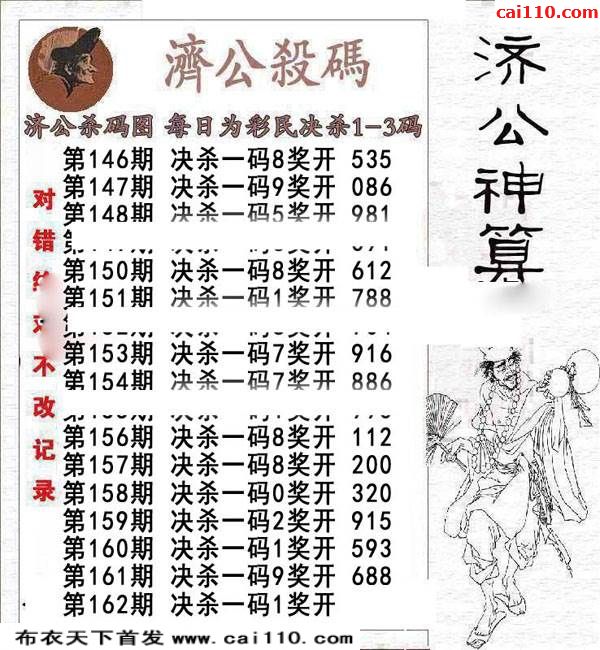 cai110.com
濟公殺碼
济公神算
济公杀码图 每日为彩民决杀1-3码
第146期 决杀一码8奖开 535
第147期 决杀一码9奖开 086
第148期 决杀一码5奖开 981
第150期 决杀一码8奖开 612
第151期 决杀一码1奖开 788
第153期 决杀一码7奖开 916
第154期 决杀一码7奖开 886
第156期 决杀一码8奖开 112
第157期 决杀一码8奖开 200
第158期 决杀一码0奖开 320
第159期 决杀一码2奖开 915
第160期 决杀一码1奖开 593
第161期 决杀一码9奖开 688
第162期 决杀一码1奖开
对错
不改记录
布衣天下首发 www.cai110.com